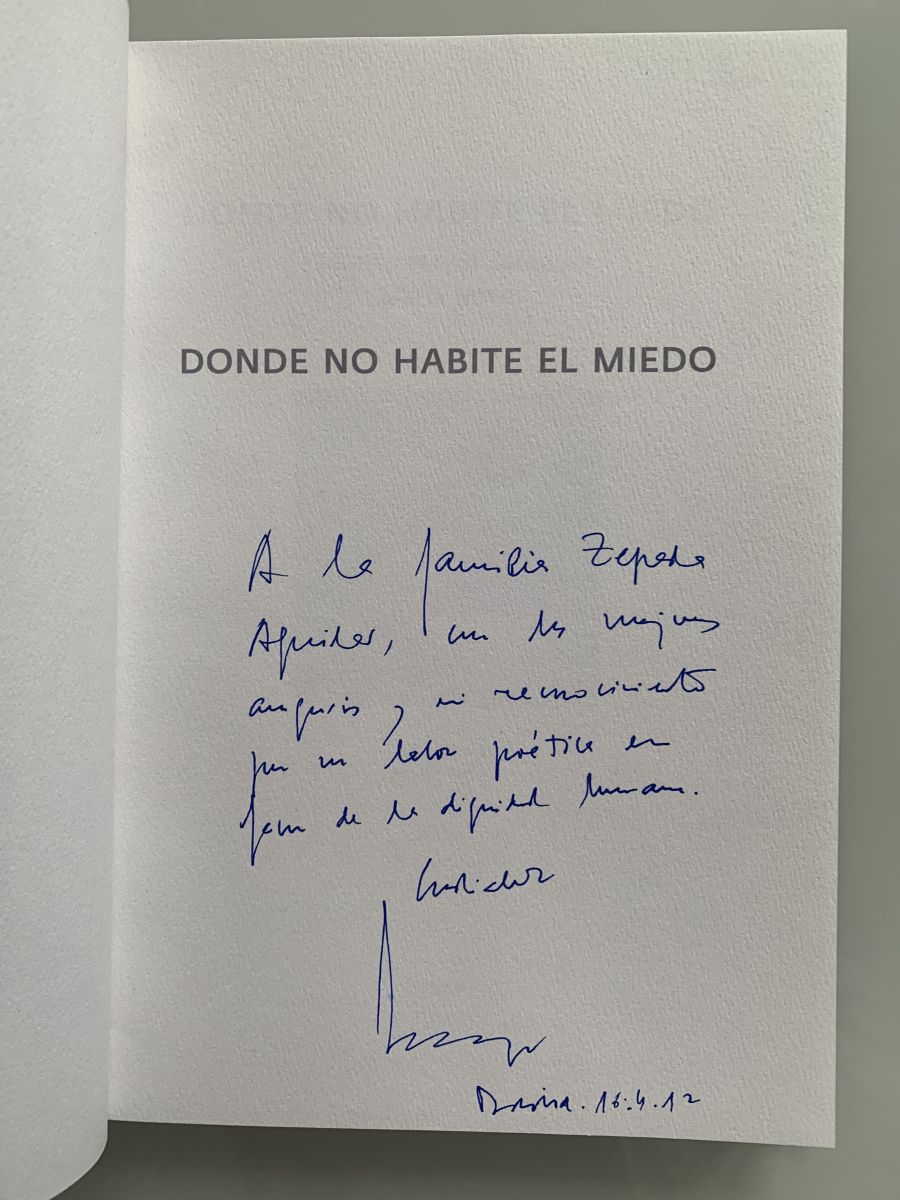 DONDE NO HABITE EL MIEDO
A la familia Zepeda
Aguilar, con los mejores
augurios y mi reconocimiento
por su labor poética en
favor de la dignidad humana.
16.4.12